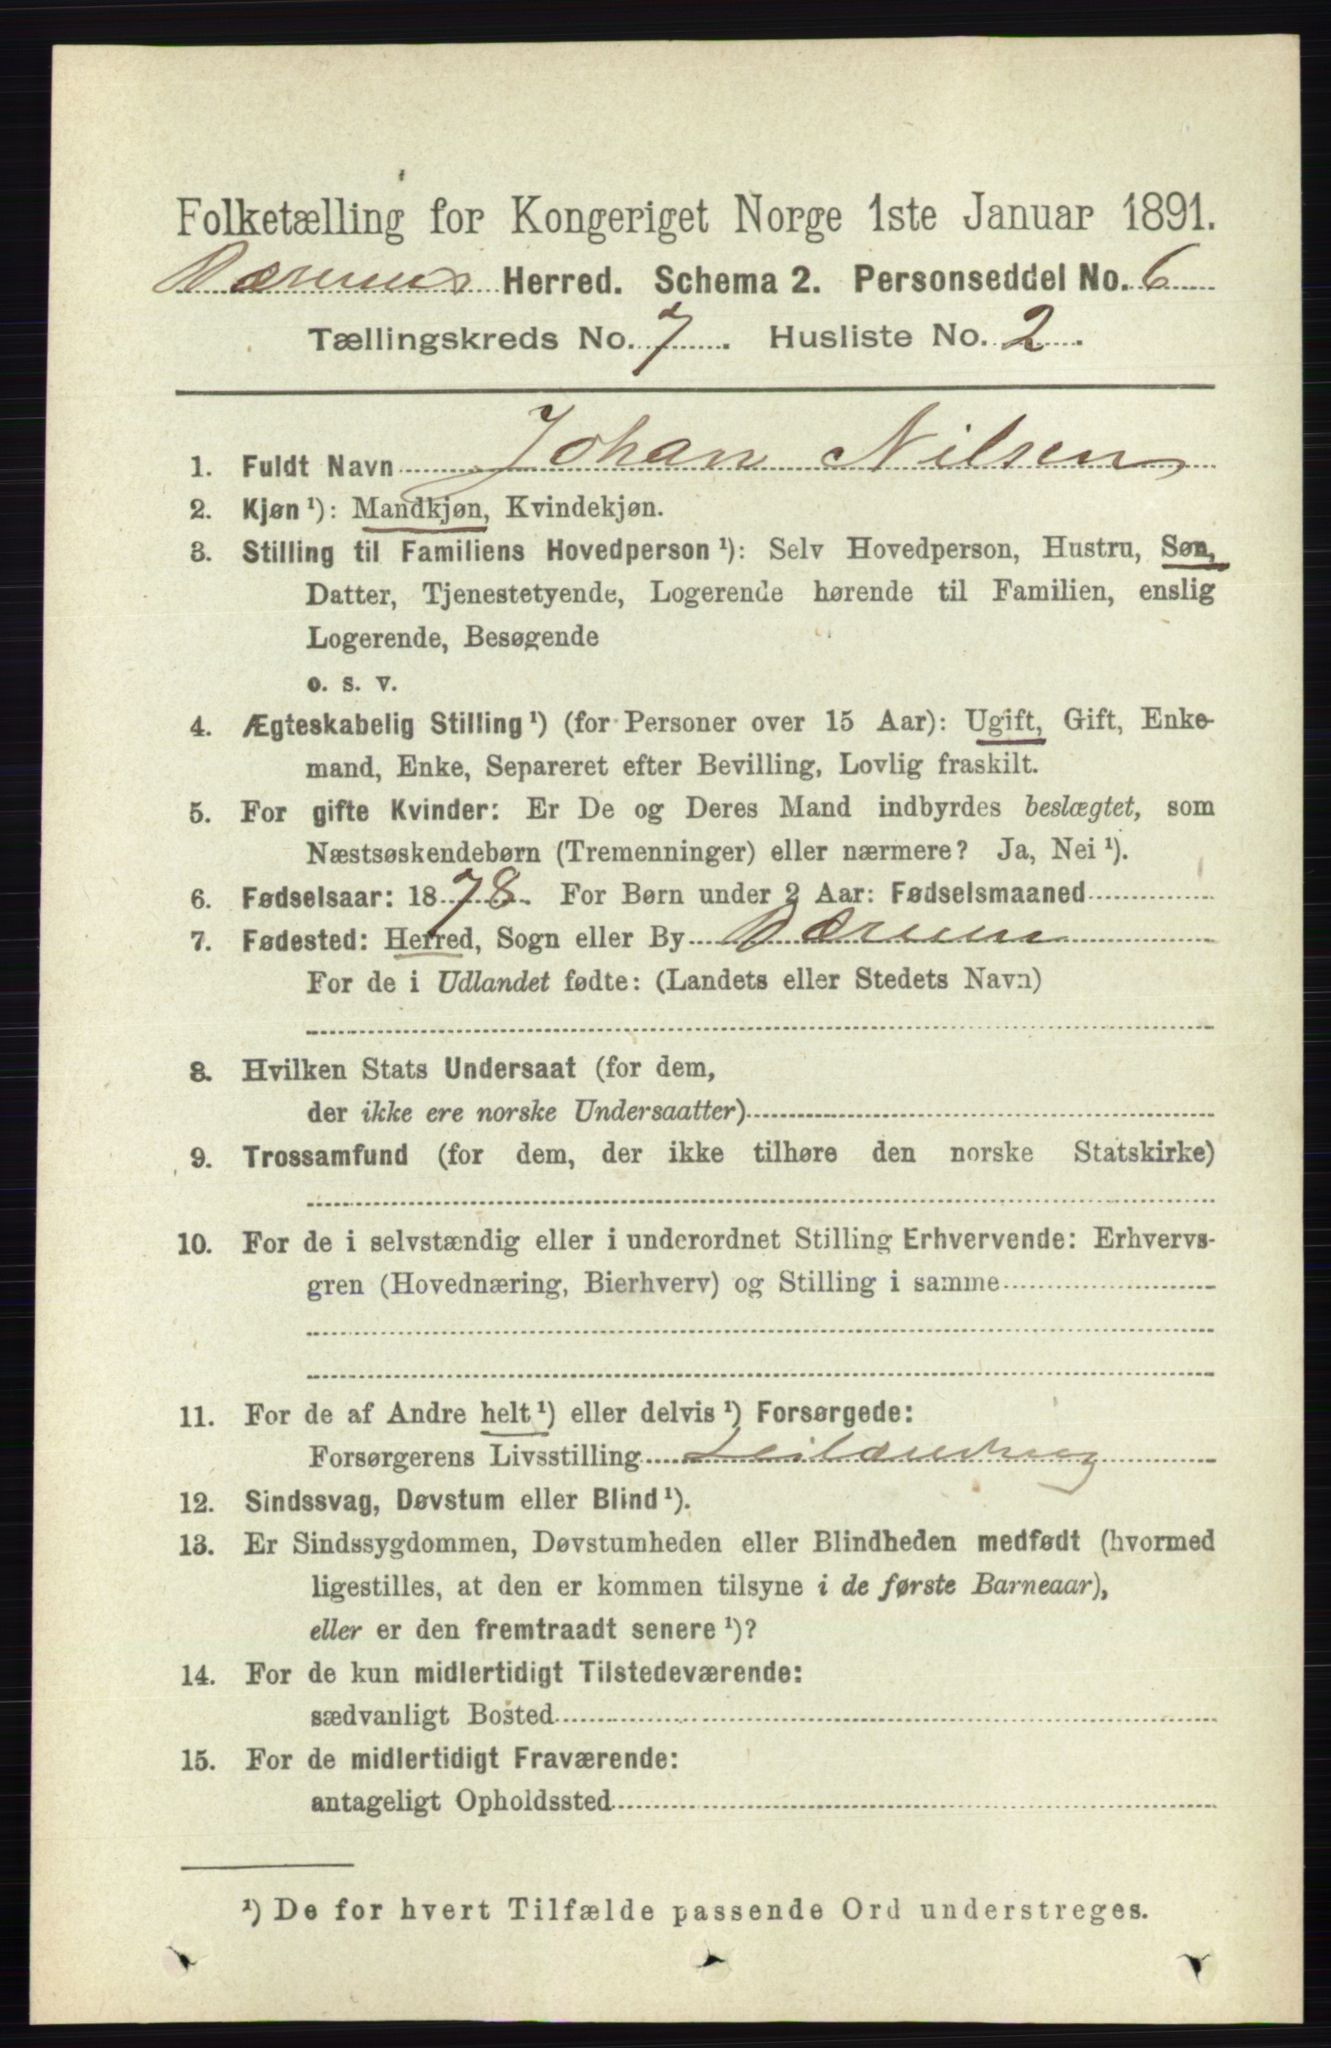 Folketælling for Kongeriget Norge 1ste Januar 1891.
Bærums Herred. Schema 2. Personseddel No. 6
Tællingskreds No. 7. Husliste No. 2.
1. Fuldt Navn Johan Nilsen
2. Kjøn ¹): Mandkjøn, Kvindekjøn.
3. Stilling til Familiens Hovedperson ¹): Selv Hovedperson, Hustru, Søn,
Datter, Tjenestetyende, Logerende hørende til Familien, enslig
Logerende, Besøgende
o. s. v.
4. Ægteskabelig Stilling ¹) (for Personer over 15 Aar): Ugift, Gift, Enke-
mand, Enke, Separeret efter Bevilling, Lovlig fraskilt.
5. For gifte Kvinder: Er De og Deres Mand indbyrdes beslægtet, som
Næstsøskendebørn (Tremenninger) eller nærmere? Ja, Nei ¹).
6. Fødselsaar: 1878. For Børn under 2 Aar: Fødselsmaaned
7. Fødested: Herred, Sogn eller By Bærum
For de i Udlandet fødte: (Landets eller Stedets Navn)
8. Hvilken Stats Undersaat (for dem,
der ikke ere norske Undersaatter)
9. Trossamfund (for dem, der ikke tilhøre den norske Statskirke)
10. For de i selvstændig eller i underordnet Stilling Erhvervende: Erhvervs-
gren (Hovednæring, Bierhverv) og Stilling i samme
11. For de af Andre helt ¹) eller delvis ¹) Forsørgede:
Forsørgerens Livsstilling
12. Sindssvag, Døvstum eller Blind ¹).
13. Er Sindssygdommen, Døvstumheden eller Blindheden medfødt (hvormed
ligestilles, at den er kommen tilsyne i de første Barneaar),
eller er den fremtraadt senere ¹)?
14. For de kun midlertidigt Tilstedeværende:
sædvanligt Bosted
15. For de midlertidigt Fraværende:
antageligt Opholdssted
¹) De for hvert Tilfælde passende Ord understreges.